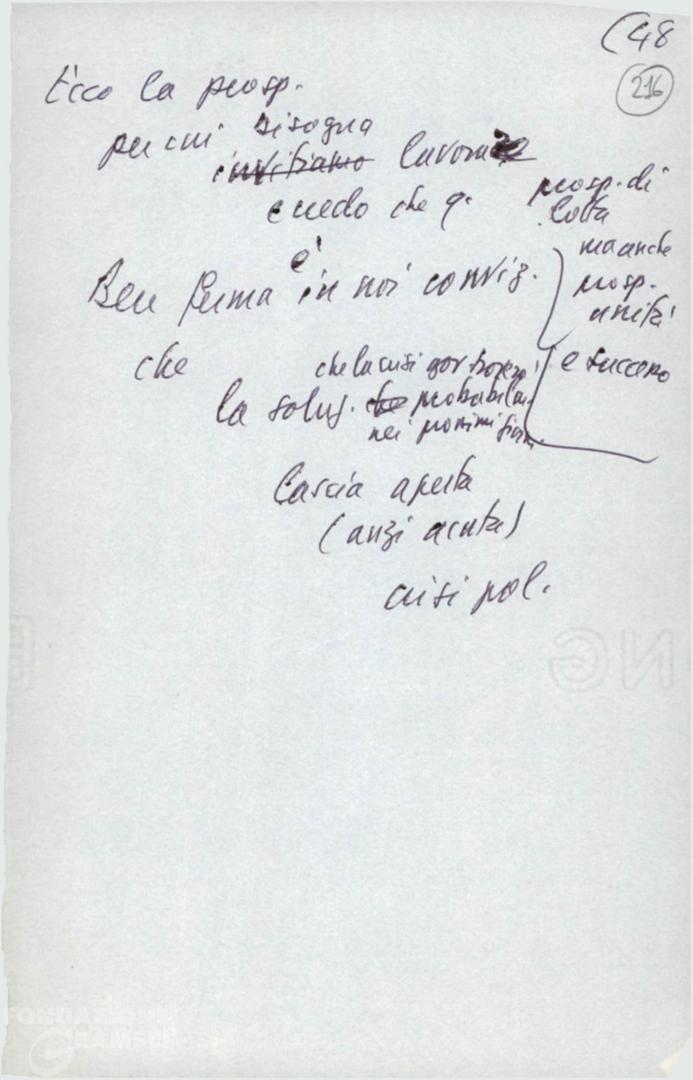 (48
216
Ecco la prosp.
per cui bisogna
invitiamo lavorare
credo che q.
prosp. di
lotta
ma anche
prosp.
unità
e successo
è
Ben ferma in noi conviz.
che
che la crisi gov troverà
la soluz. che probabilm.
nei prossimi giorni
lascia aperta
(anzi acuta)
crisi pol.
NG
FONDAZIONE
GRAMSCI